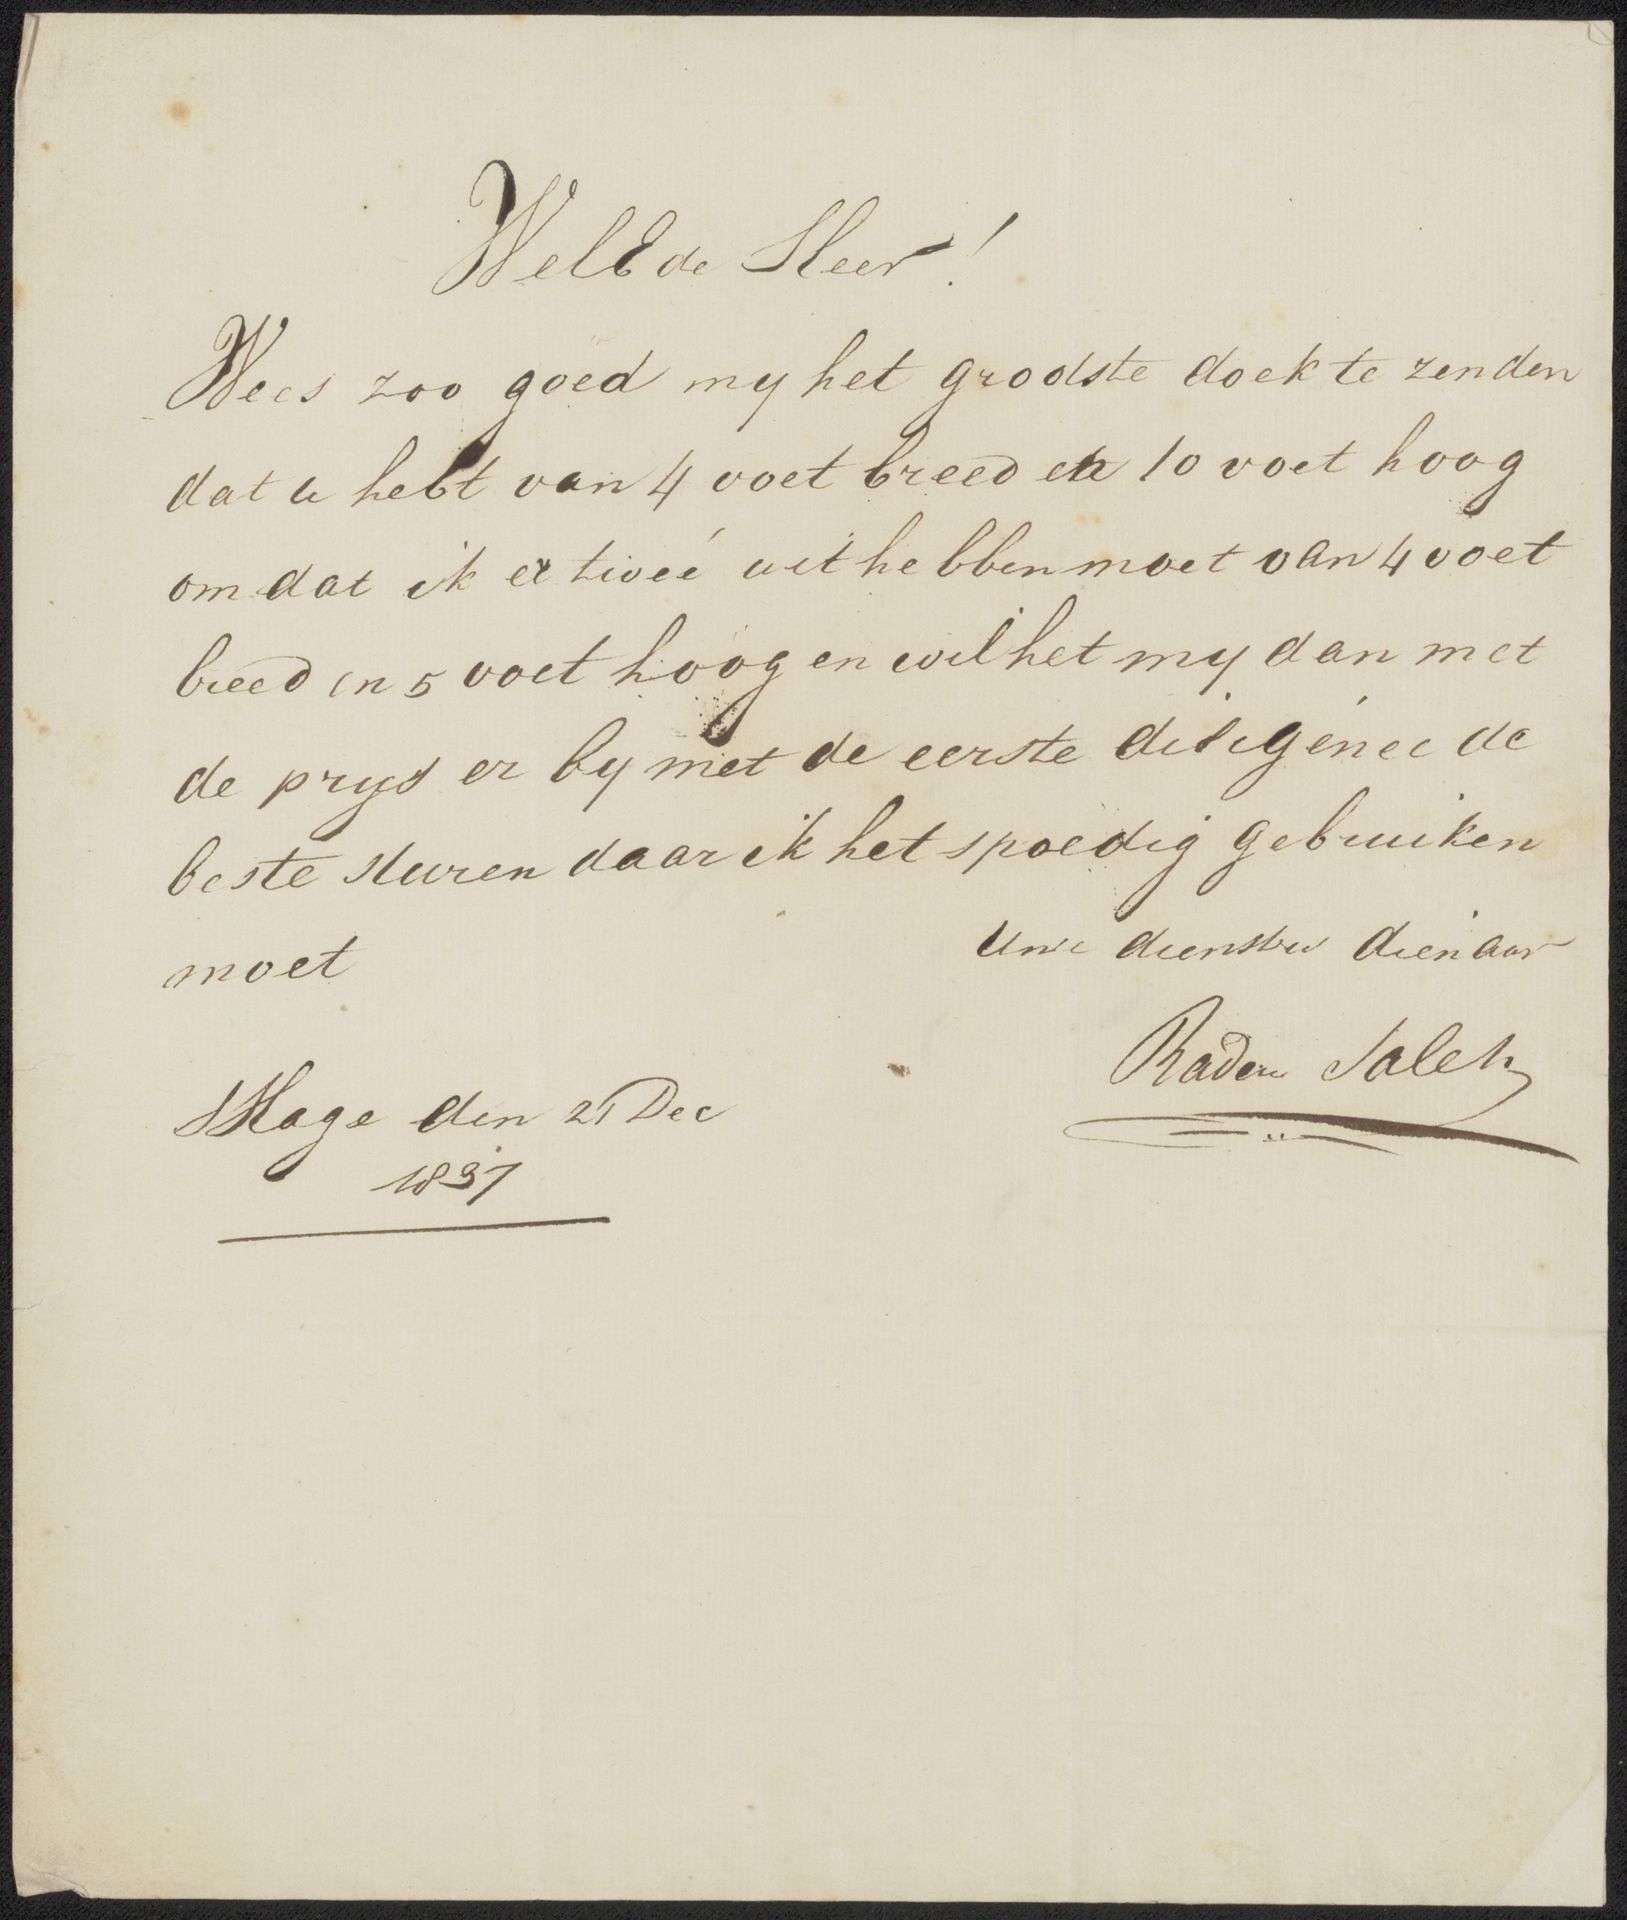 WelEde Heer!
Wees zoo goed my het grootste doek te zenden
dat u hebt van 4 voet breed en 10 voet hoog
om dat ik er tweé uit hebben moet van 4 voet
breed en 5 voet hoog en wil het my dan met
de prys er by met de eerste diligence de
beste sturen daar ik het spoedig gebruiken
moet
Uwe dienstw dienaar
Raden Saleh
S'Hage den 21 Dec
1837